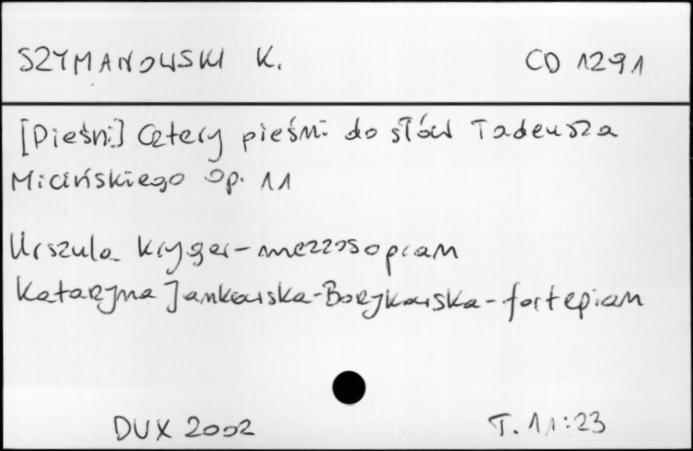 SZYMANOWSKI K. CD 1291
[Pieśni] Cztery pieśni do słów Tadeusza
Micińskiego op. 11
Urszula Kryger - mezzosopran
Katarzyna Jankowska-Borzykowska - fortepian
DUX 2002 T. 11:23